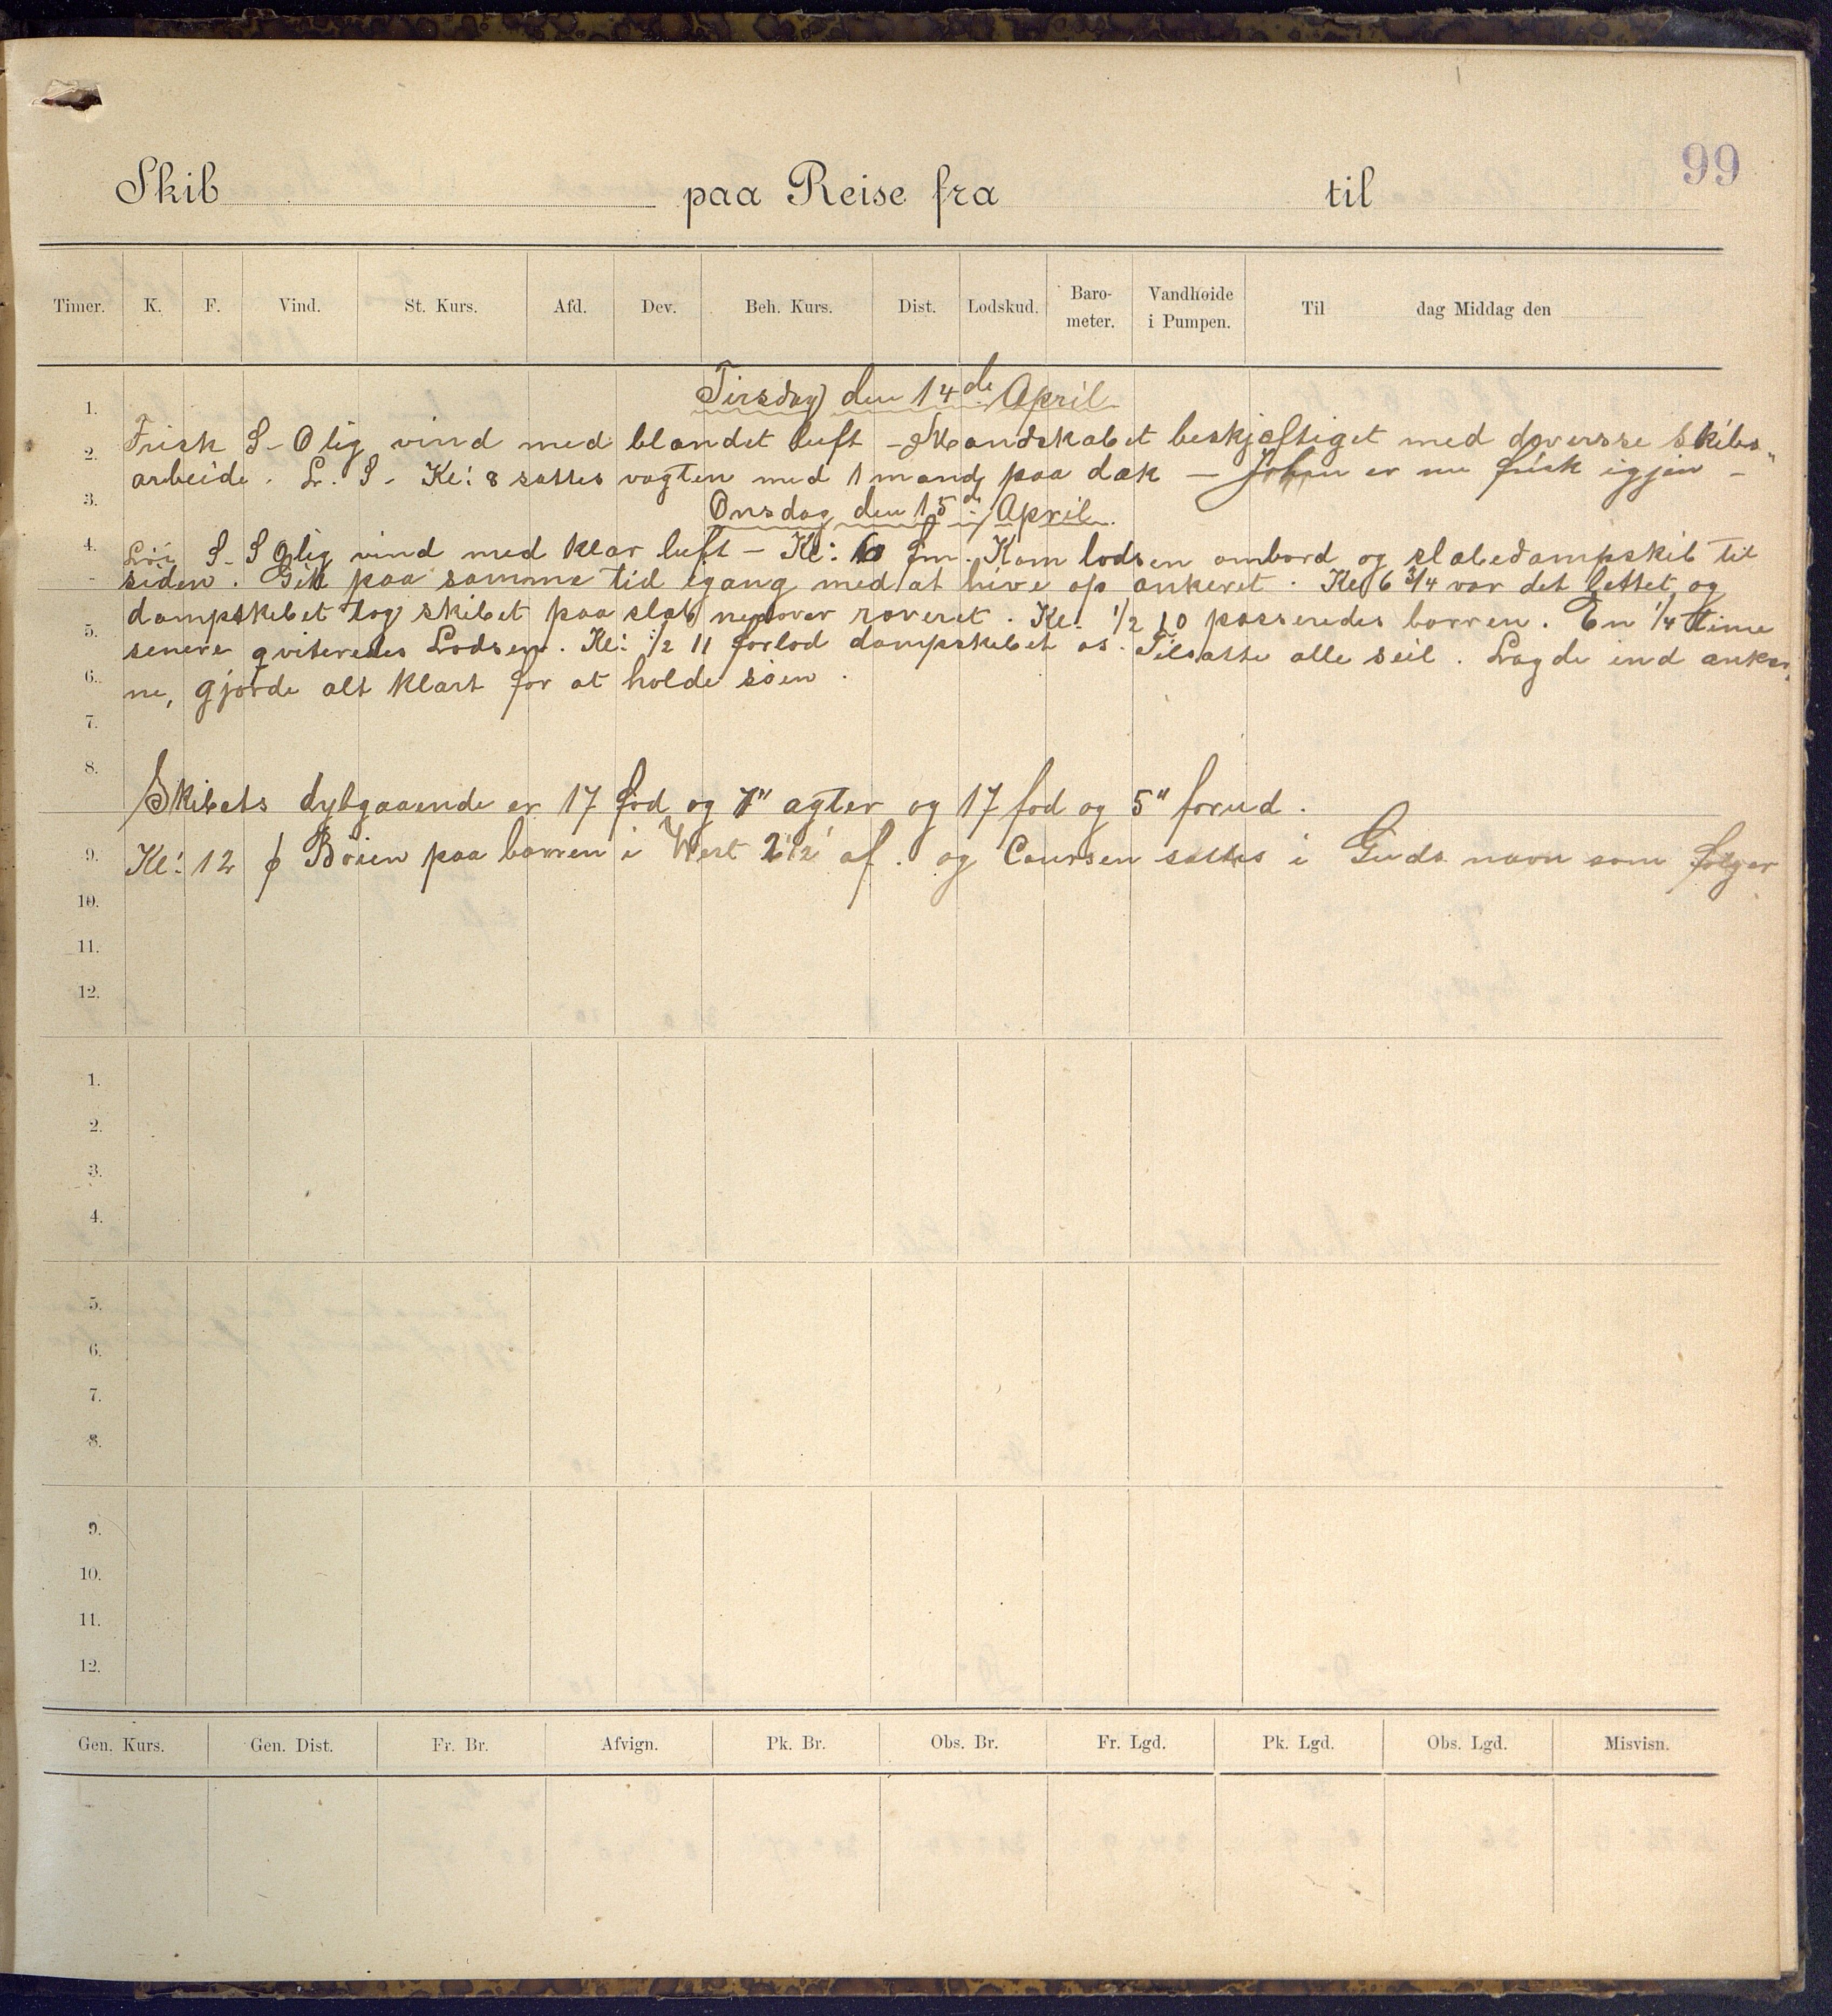 99
Skib paa Reise fra til
Timer. K. F. Vind. St. Kurs. Afd. Dev. Beh. Kurs. Dist. Lodskud. Baro-meter. Vandhøide i Pumpen. Til dag Middag den
Tirsdag den 14de April
Frisk S-Olig vind med blandet luft - Mandskabet beskjæftiget med doversse Skibs"
arbeide. L. S. Kl: 8 sattes vagten med 1 mand paa dæk - Johan er nu frisk igjen -
Onsdag den 15de April.
Löi S-SOlig vind med klar luft - Kl: 6 fm. Kom lodsen ombord og slæbedampskib til
siden. Gik paa samme tid igang med at hive op ankeret. Kl 6 3/4 var det lettet og
dampskibet tog skibet paa slæb nedover roveret. Kl. 1/2 10 passeredes barren. En 1/4 time
senere qviteredes Lodsen. Kl: 1/2 11 forlod dampskibet os. Tilsatte alle seil. Lagde ind anker,
ne, gjorde alt klart for at holde søen.
Skibets dybgaaende er 17 fod og 7" agter og 17 fod og 5" forud.
Kl: 12 Böien paa barren i West 2 1/2' af. og Coursen sattes i Guds navn som følger
1.
2.
3.
4.
5.
6.
7.
8.
9.
10.
11.
12.
1.
2.
3.
4.
5.
6.
7.
8.
9.
10.
11.
12.
Gen. Kurs. Gen. Dist. Fr. Br. Afvign. Pk. Br. Obs. Br. Fr. Lgd. Pk. Lgd. Obs. Lgd. Misvisn.